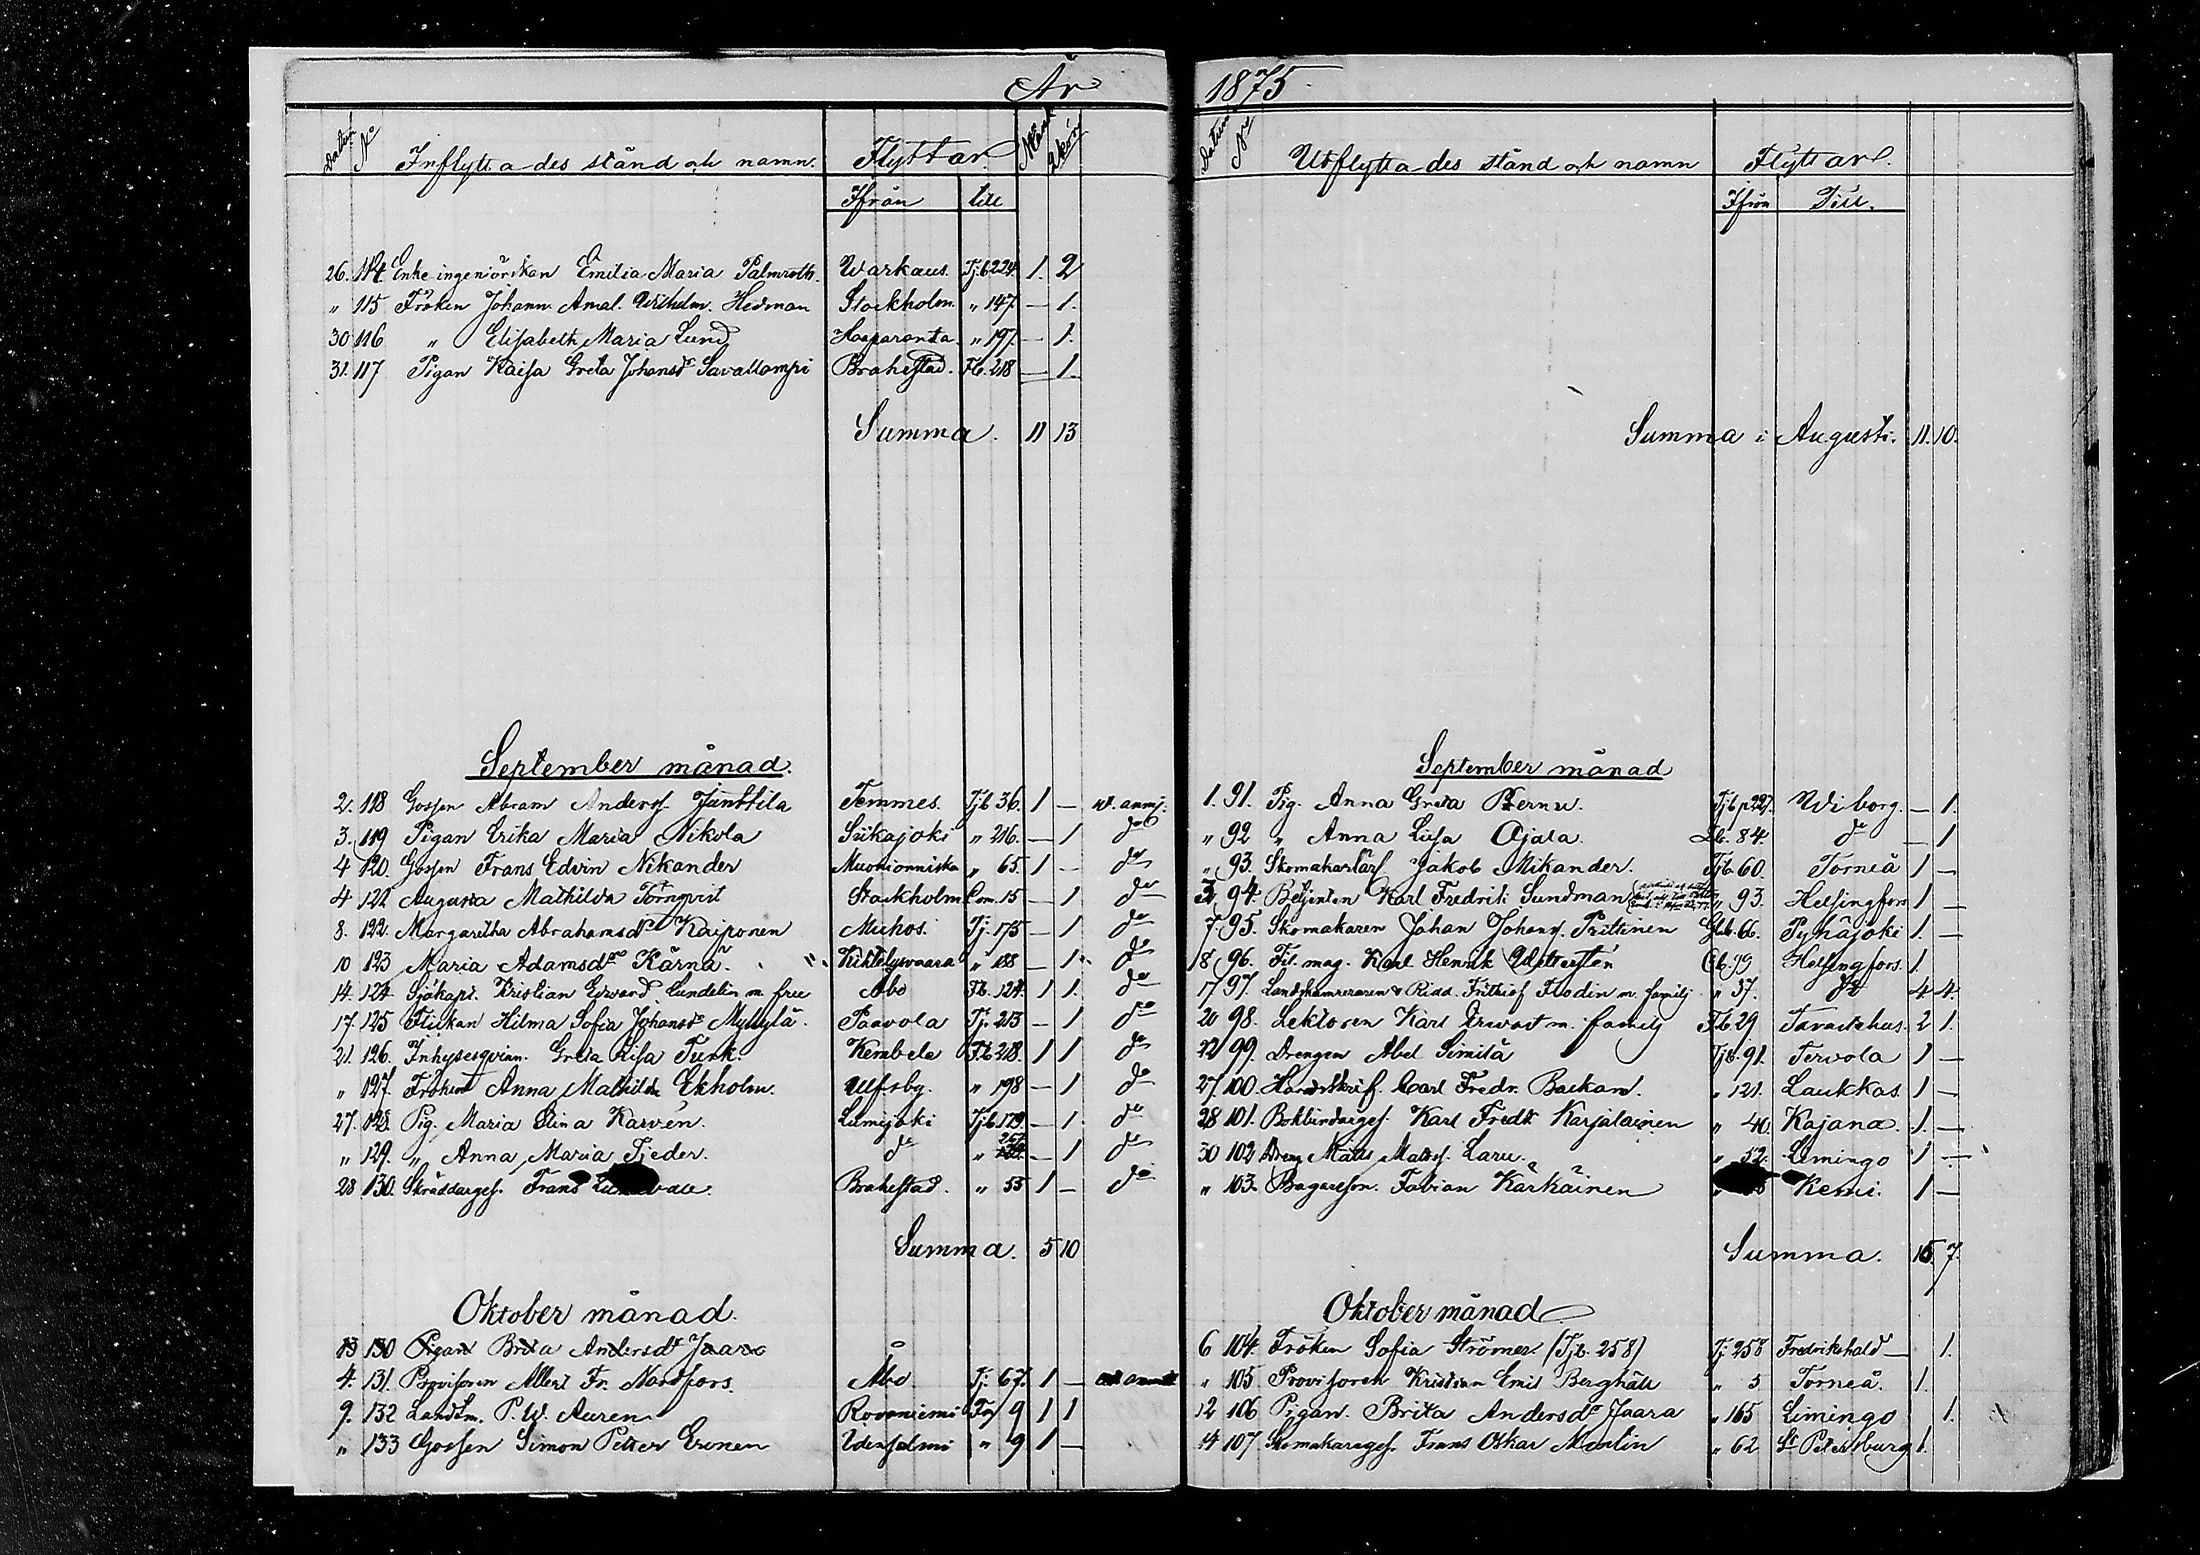 År
Datum No Inflytta-des stånd och namn. Flyttar Mank. Qvkön
Ifrån till
26. 114 Enke ingeniörskan Emilia Maria Palmroth. Warkaus. Tjb 224. 1. 2
„ 115 Fröken Johann. Amal. Wilhelm. Hedman Stockholm. „ 147. — 1.
30 116 „ Elisabeth Maria Lund Haaparanta. „ 197. — 1.
31. 117 Pigan Kaisa Greta Johansdr Savallampi Brahestad. Fb. 218 — 1.
Summa. 11 13
September månad.
2. 118 Gossen Abram Anderss. Junttila Temmes. Tjb 36. 1 — ut. anmj.
3. 119 Pigan Erika Maria Nikola Siikajoki „ 216. — 1 do
4 120. Gossen Frans Edvin Nikander Muonionniska „ 65. 1 — do
4 121 Augusta Mathilda Törnqvist Stockholm 15 — 1 do
8. 122. Margaretha Abrahamsdr Kaiponen Muhos. Tj. 175 — 1 do
10 123 Maria Adamsdr Kärnä. Kiktelysvaara „ 188 — 1. do
14. 124. Sjökapt. Kristian Edvard Lundelin m. fru Åbo Fb. 124. 1 1. do
17. 125 Flickan Hilma Sofia Johansdr Myllylä. Paavola Tj. 213 — 1 do
21. 126. Inhysesqvinn. Greta Lisa Turk. Kembele Fb 218. 1 1 do
„ 127. Fröken Anna Mathilda Ekholm. Ulfsbg. „ 198 — 1 do
27. 128. Pig. Maria Elina Karvén. Lumijoki Tjb 179. — 1. do
„ 129. „ Anna Maria Tjeder. do „ 267 — 1 do
28 130. Skräddarges. Frans Brahestad. „ 55 1 — do
Summa. 5 10
Oktober månad.
13 130 Pigan Brita Andersdr Jaara
4. 131. Provisoren Albert Fr. Nordfors. Åbo Tj. 67. 1 —
9. 132 Landtm. P. W. Auren Rovaniemi Fb 9 1 1
„ 133 Gossen Simon Petter Eronen Idensalmi „ 9 1 —
1875
Datum No Utflytta-des stånd och namn Flyttar.
Ifrån Till.
Summa i Augusti. 11. 10.
September månad
1. 91. Pig. Anna Greta Pernu. Tjb p 227. Wiborg. — 1.
„ 92 „ Anna Lisa Ojala Fb. 84. do — 1
„ 93. Skomakarlärl Jakob Mikander. Tjb. 60. Torneå 1 —
94. Betjenten Karl Fredrik Sundman „ 93. Helsingfors 1 —
7. 95. Skomakaren Johan Johans. Prittinen Gb. 66. Pyhäjoki 1. —
8 96. Fil. mag. Karl Henrik 19 Helsingfors. 1.
17 97. Landskamreraren & Ridd. Frithiof Flodin m. familj „ 37. do 4 4.
20 98. Lektoren Karl m. familj Fb. 29 Tavastehus. 2 1.
22 99. Drengen Abel Similä Tjb. 91. Tervola 1 —
27 100. Handtskrif. Carl Fredr. Backan. „ 121. Laukkas. 1 —
28 101. Bokbindargess. Karl Fredr. Karjalainen „ 40 Kajana. 1. —
30 102 Dreng Matts Matts. Laru. „ 52. Limingo 1 —
„ 103. Bagaresson. Fabian Kärkäinen Kemi. 1 —
Summa. 15 7.
Oktober månad
6 104. Fröken Sofia Strömer. (Tjb. 258) Tj 258 Fredrikshald — 1.
„ 105 Provisoren Kristian Emil Berghäll „ 5 Torneå. 1.
12 106 Pigan. Brita Andersdr Jaara „ 165 Limingo 1.
14 107. Skomakaregess. Frans Oskar Merlin „ 62 St Petersburg 1.